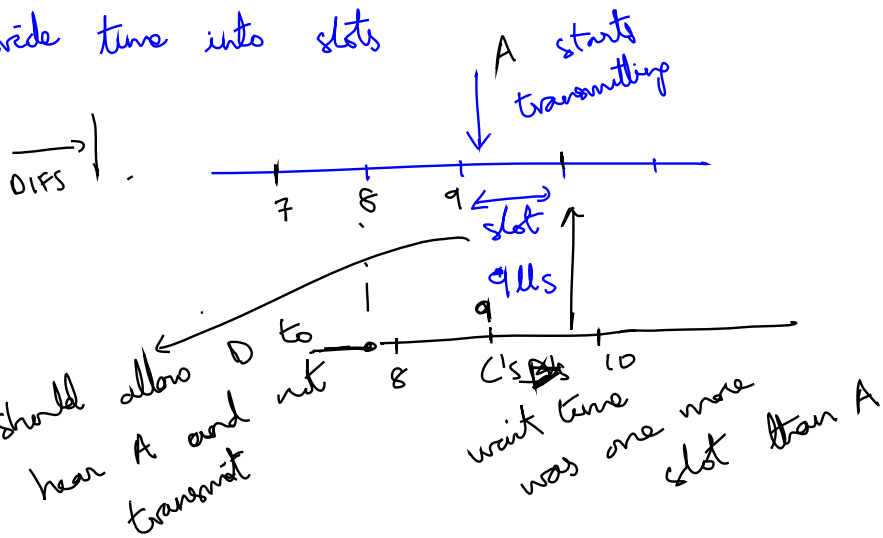 vide time into slots
A starts
transmitting
DIFS
7 8 9
slot
9us
9
8 C's 10
should allow D to
hear A and not
transmit
wait time
was one more
slot than A